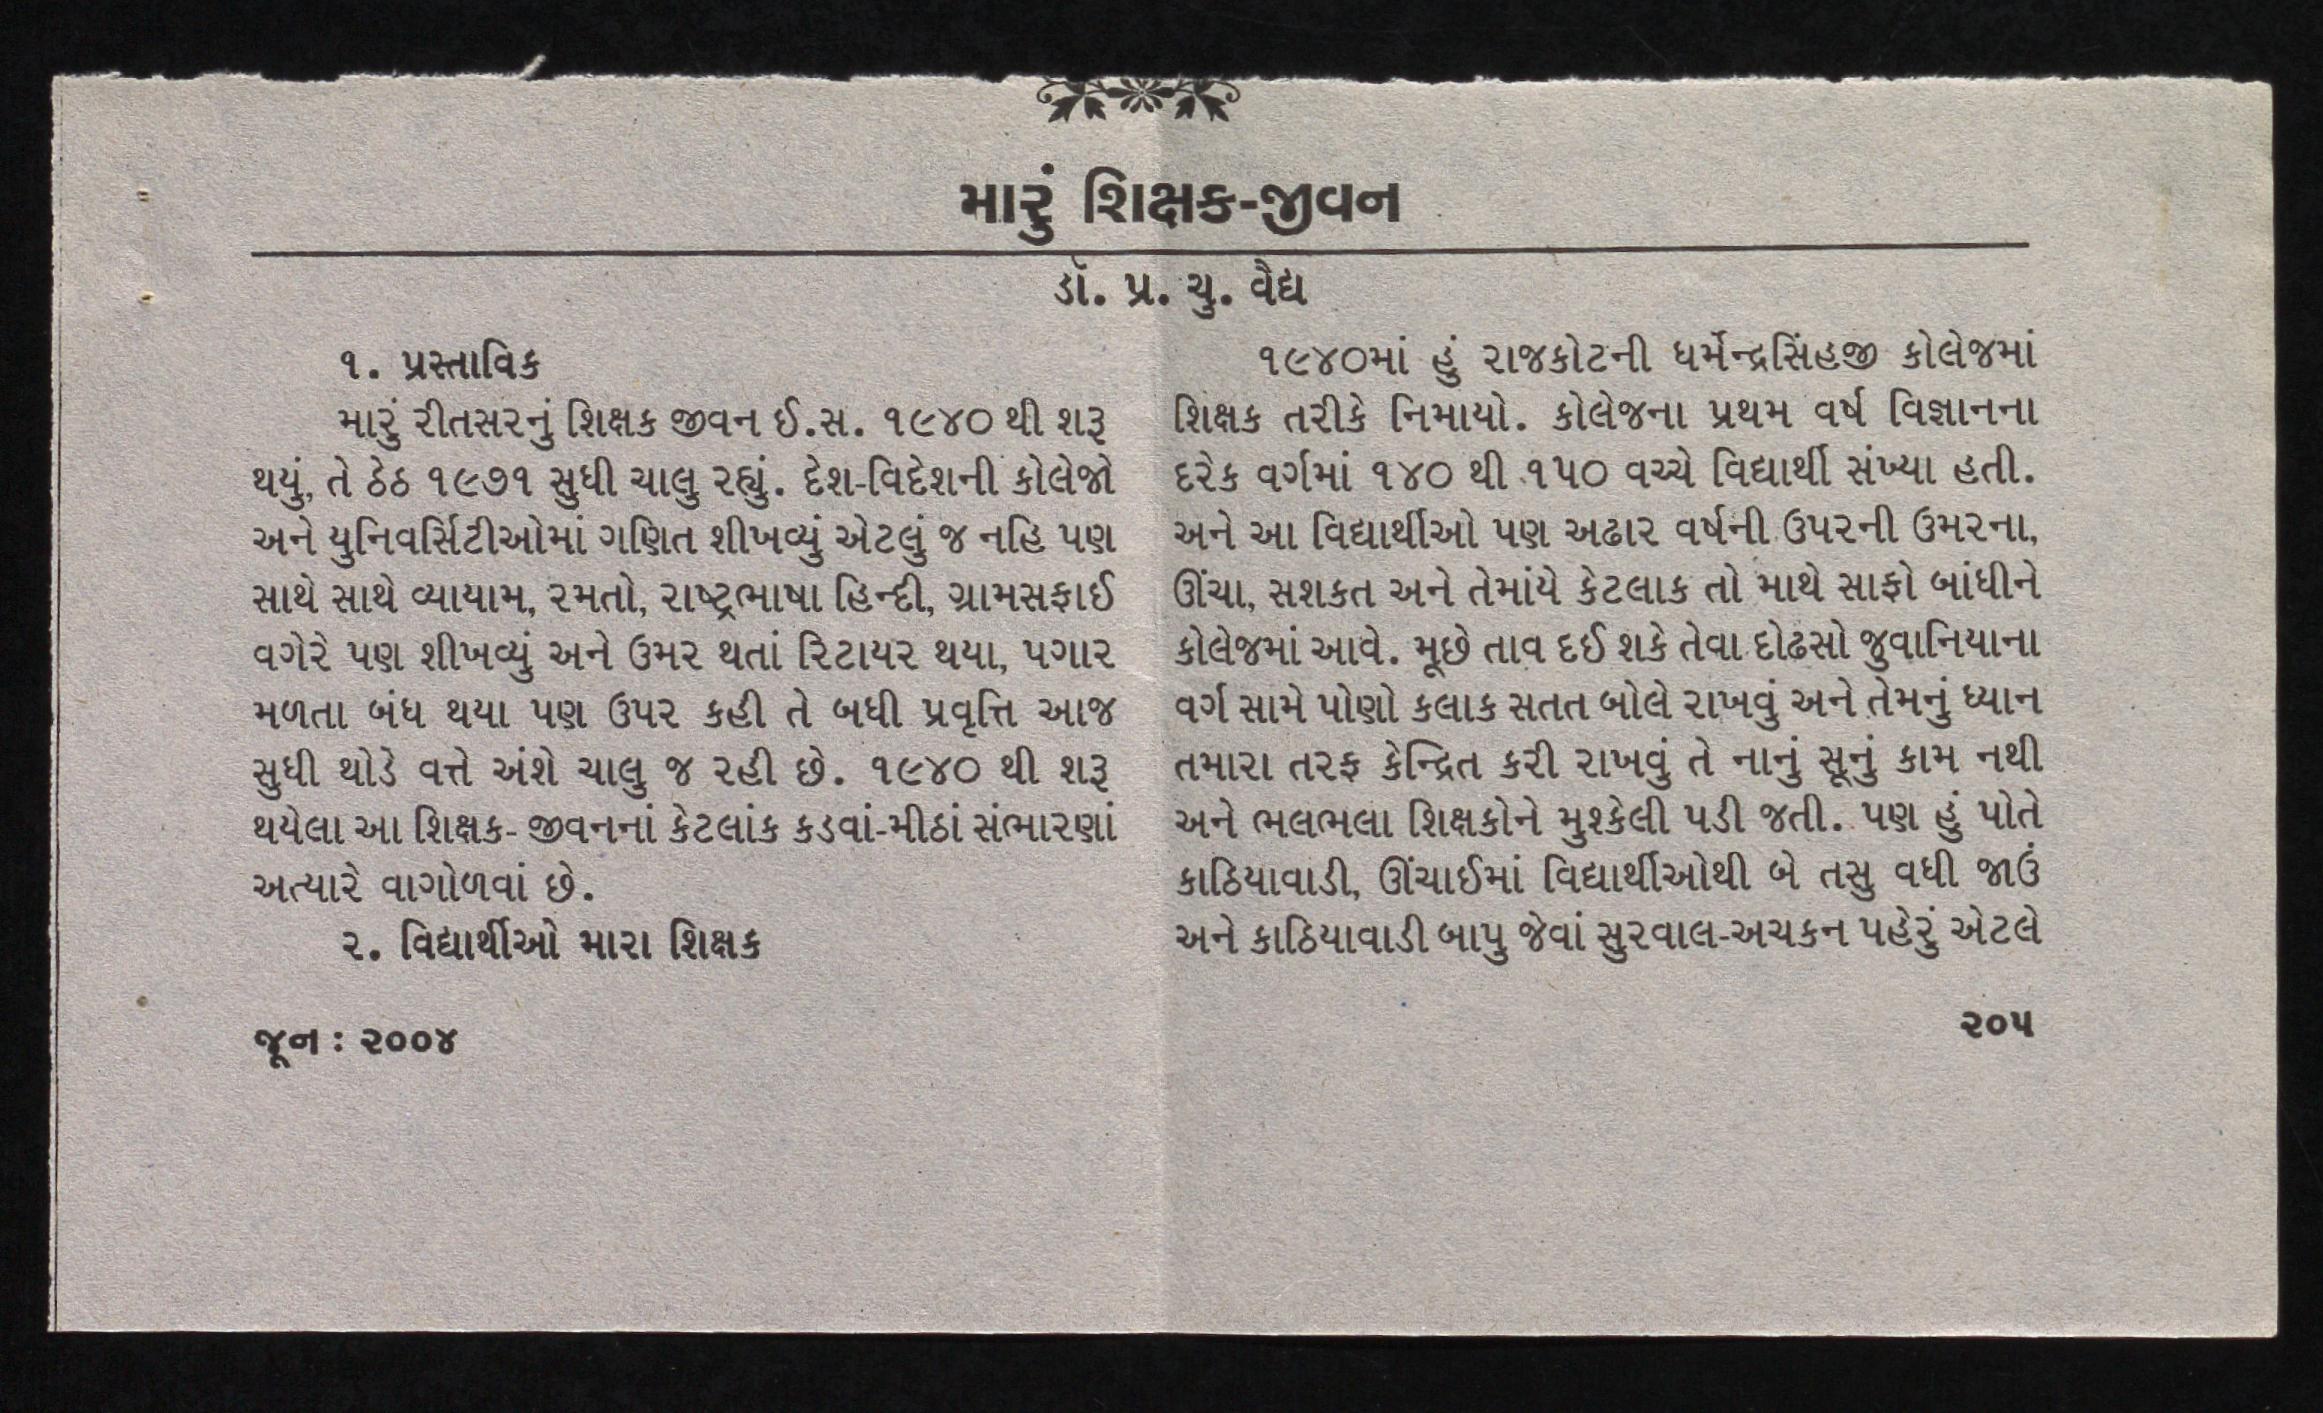 મારું શિક્ષક-જીવન
ડૉ. પ્ર. ચુ. વૈદ્ય
૧. પ્રસ્તાવિક
મારું રીતસરનું શિક્ષક જીવન ઈ.સ. ૧૯૪૦ થી શરૂ
થયું, તે ઠેઠ ૧૯૭૧ સુધી ચાલુ રહ્યું. દેશ-વિદેશની કોલેજો
અને યુનિવર્સિટીઓમાં ગણિત શીખવ્યું એટલું જ નહિ પણ
સાથે સાથે વ્યાયામ, રમતો, રાષ્ટ્રભાષા હિન્દી, ગ્રામસફાઈ
વગેરે પણ શીખવ્યું અને ઉમર થતાં રિટાયર થયા, પગાર
મળતા બંધ થયા પણ ઉપર કહી તે બધી પ્રવૃત્તિ આજ
સુધી થોડે વત્તે અંશે ચાલુ જ રહી છે. ૧૯૪૦ થી શરૂ
થયેલા આ શિક્ષક- જીવનનાં કેટલાંક કડવાં-મીઠાં સંભારણાં
અત્યારે વાગોળવાં છે.
૨. વિદ્યાર્થીઓ મારા શિક્ષક
૧૯૪૦માં હું રાજકોટની ધર્મેન્દ્રસિંહજી કોલેજમાં
શિક્ષક તરીકે નિમાયો. કોલેજના પ્રથમ વર્ષ વિજ્ઞાનના
દરેક વર્ગમાં ૧૪૦ થી ૧૫૦ વચ્ચે વિદ્યાર્થી સંખ્યા હતી.
અને આ વિદ્યાર્થીઓ પણ અઢાર વર્ષની ઉપરની ઉમરના,
ઊંચા, સશકત અને તેમાંયે કેટલાક તો માથે સાફો બાંધીને
કોલેજમાં આવે. મૂછે તાવ દઈ શકે તેવા દોઢસો જુવાનિયાના
વર્ગ સામે પોણો કલાક સતત બોલે રાખવું અને તેમનું ધ્યાન
તમારા તરફ કેન્દ્રિત કરી રાખવું તે નાનું સૂનું કામ નથી
અને ભલભલા શિક્ષકોને મુશ્કેલી પડી જતી. પણ હું પોતે
કાઠિયાવાડી, ઊંચાઈમાં વિદ્યાર્થીઓથી બે તસુ વધી જાઉં
અને કાઠિયાવાડી બાપુ જેવાં સુરવાલ-અચકન પહેરું એટલે
જૂન : ૨૦૦૪
૨૦૫